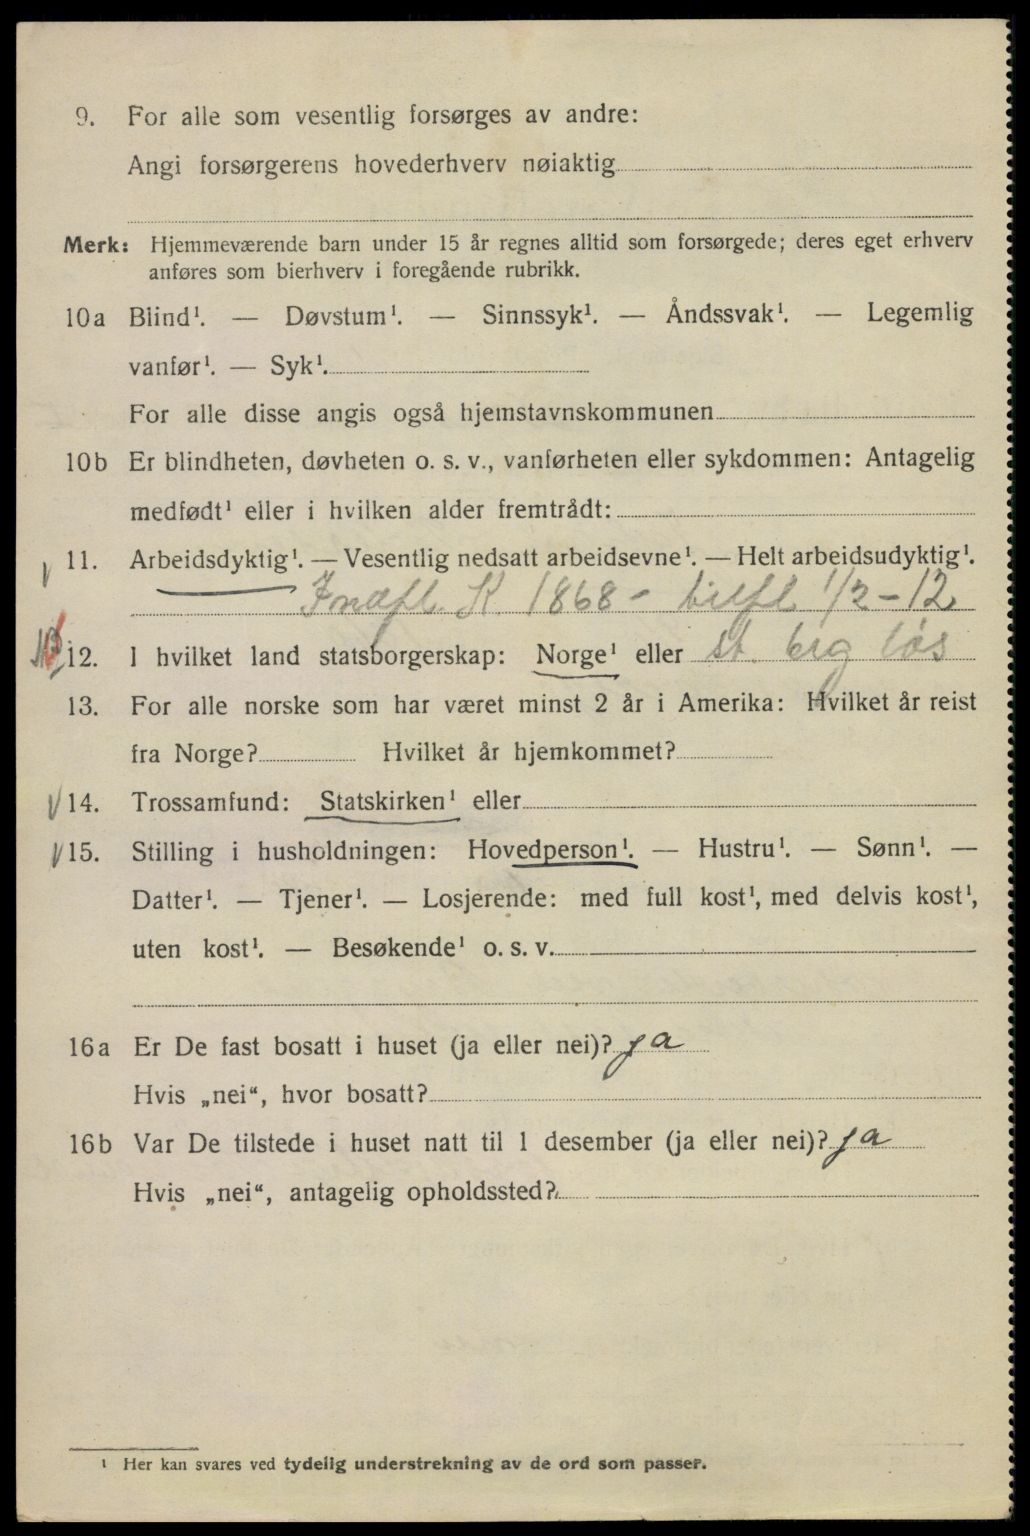 9. For alle som vesentlig forsørges av andre:
Angi forsørgerens hovederhverv nøiaktig
Merk: Hjemmeværende barn under 15 år regnes alltid som forsørgede; deres eget erhverv
anføres som bierhverv i foregående rubrikk.
10a Blind¹. — Døvstum¹. — Sinnssyk¹. — Åndssvak¹. — Legemlig
vanfør¹. — Syk¹.
For alle disse angis også hjemstavnskommunen
10b Er blindheten, døvheten o. s. v., vanførheten eller sykdommen: Antagelig
medfødt¹ eller i hvilken alder fremtrådt:
11. Arbeidsdyktig¹. — Vesentlig nedsatt arbeidsevne¹. — Helt arbeidsudyktig¹.
Innfl. K. 1868 - tilfl 1/2-12
12. I hvilket land statsborgerskap: Norge¹ eller st. brg løs
13. For alle norske som har været minst 2 år i Amerika: Hvilket år reist
fra Norge? Hvilket år hjemkommet?
14. Trossamfund: Statskirken¹ eller
15. Stilling i husholdningen: Hovedperson¹. — Hustru¹. — Sønn¹. —
Datter¹. — Tjener¹. — Losjerende: med full kost¹, med delvis kost¹,
uten kost¹. — Besøkende¹ o. s. v.
16a Er De fast bosatt i huset (ja eller nei)? ja
Hvis „nei“, hvor bosatt?
16b Var De tilstede i huset natt til 1 desember (ja eller nei)? ja
Hvis „nei“, antagelig opholdssted?
¹ Her kan svares ved tydelig understrekning av de ord som passer.